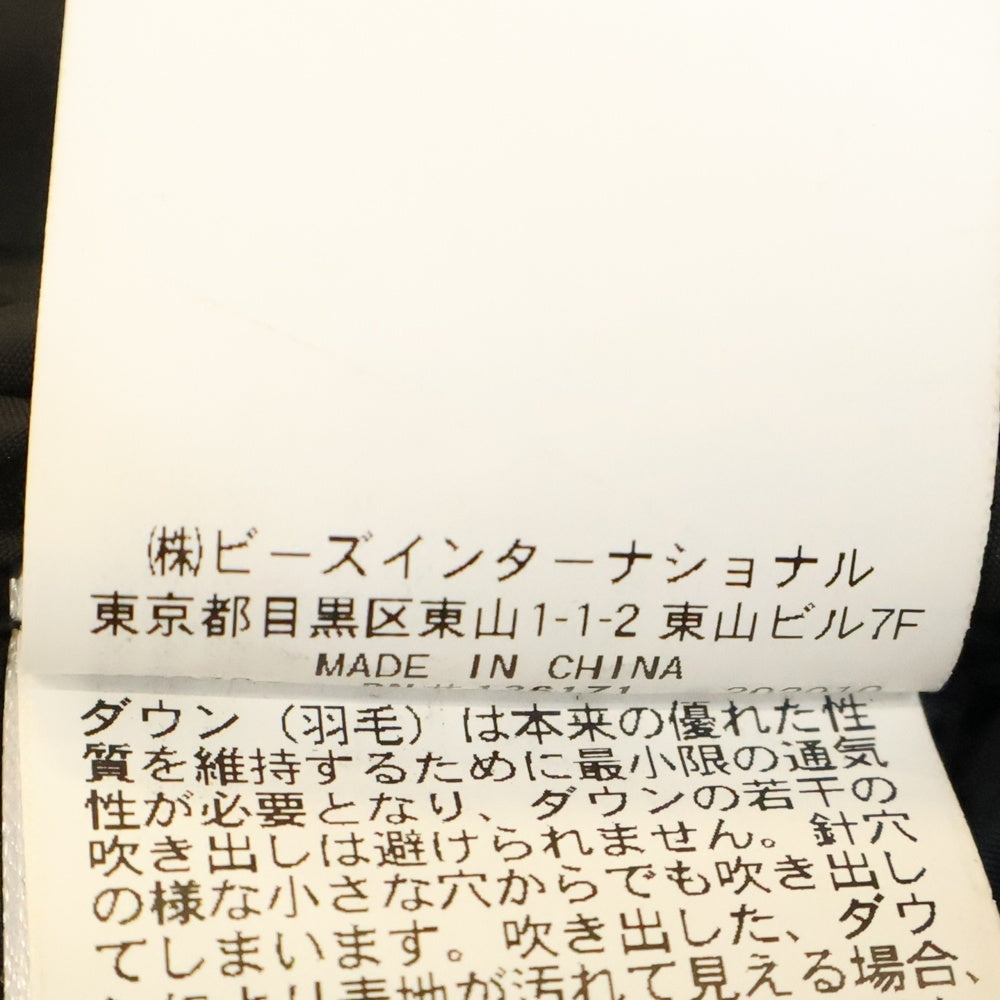 ㈱ビーズインターナショナル
東京都目黒区東山1-1-2 東山ビル7F
MADE IN CHINA
ダウン（羽毛）は本来の優れた性
質を維持するために最小限の通気
性が必要となり、ダウンの若干の
吹き出しは避けられません。針穴
の様な小さな穴からでも吹き出し
てしまいます。吹き出した、ダウ
より表地が汚れて見える場合、